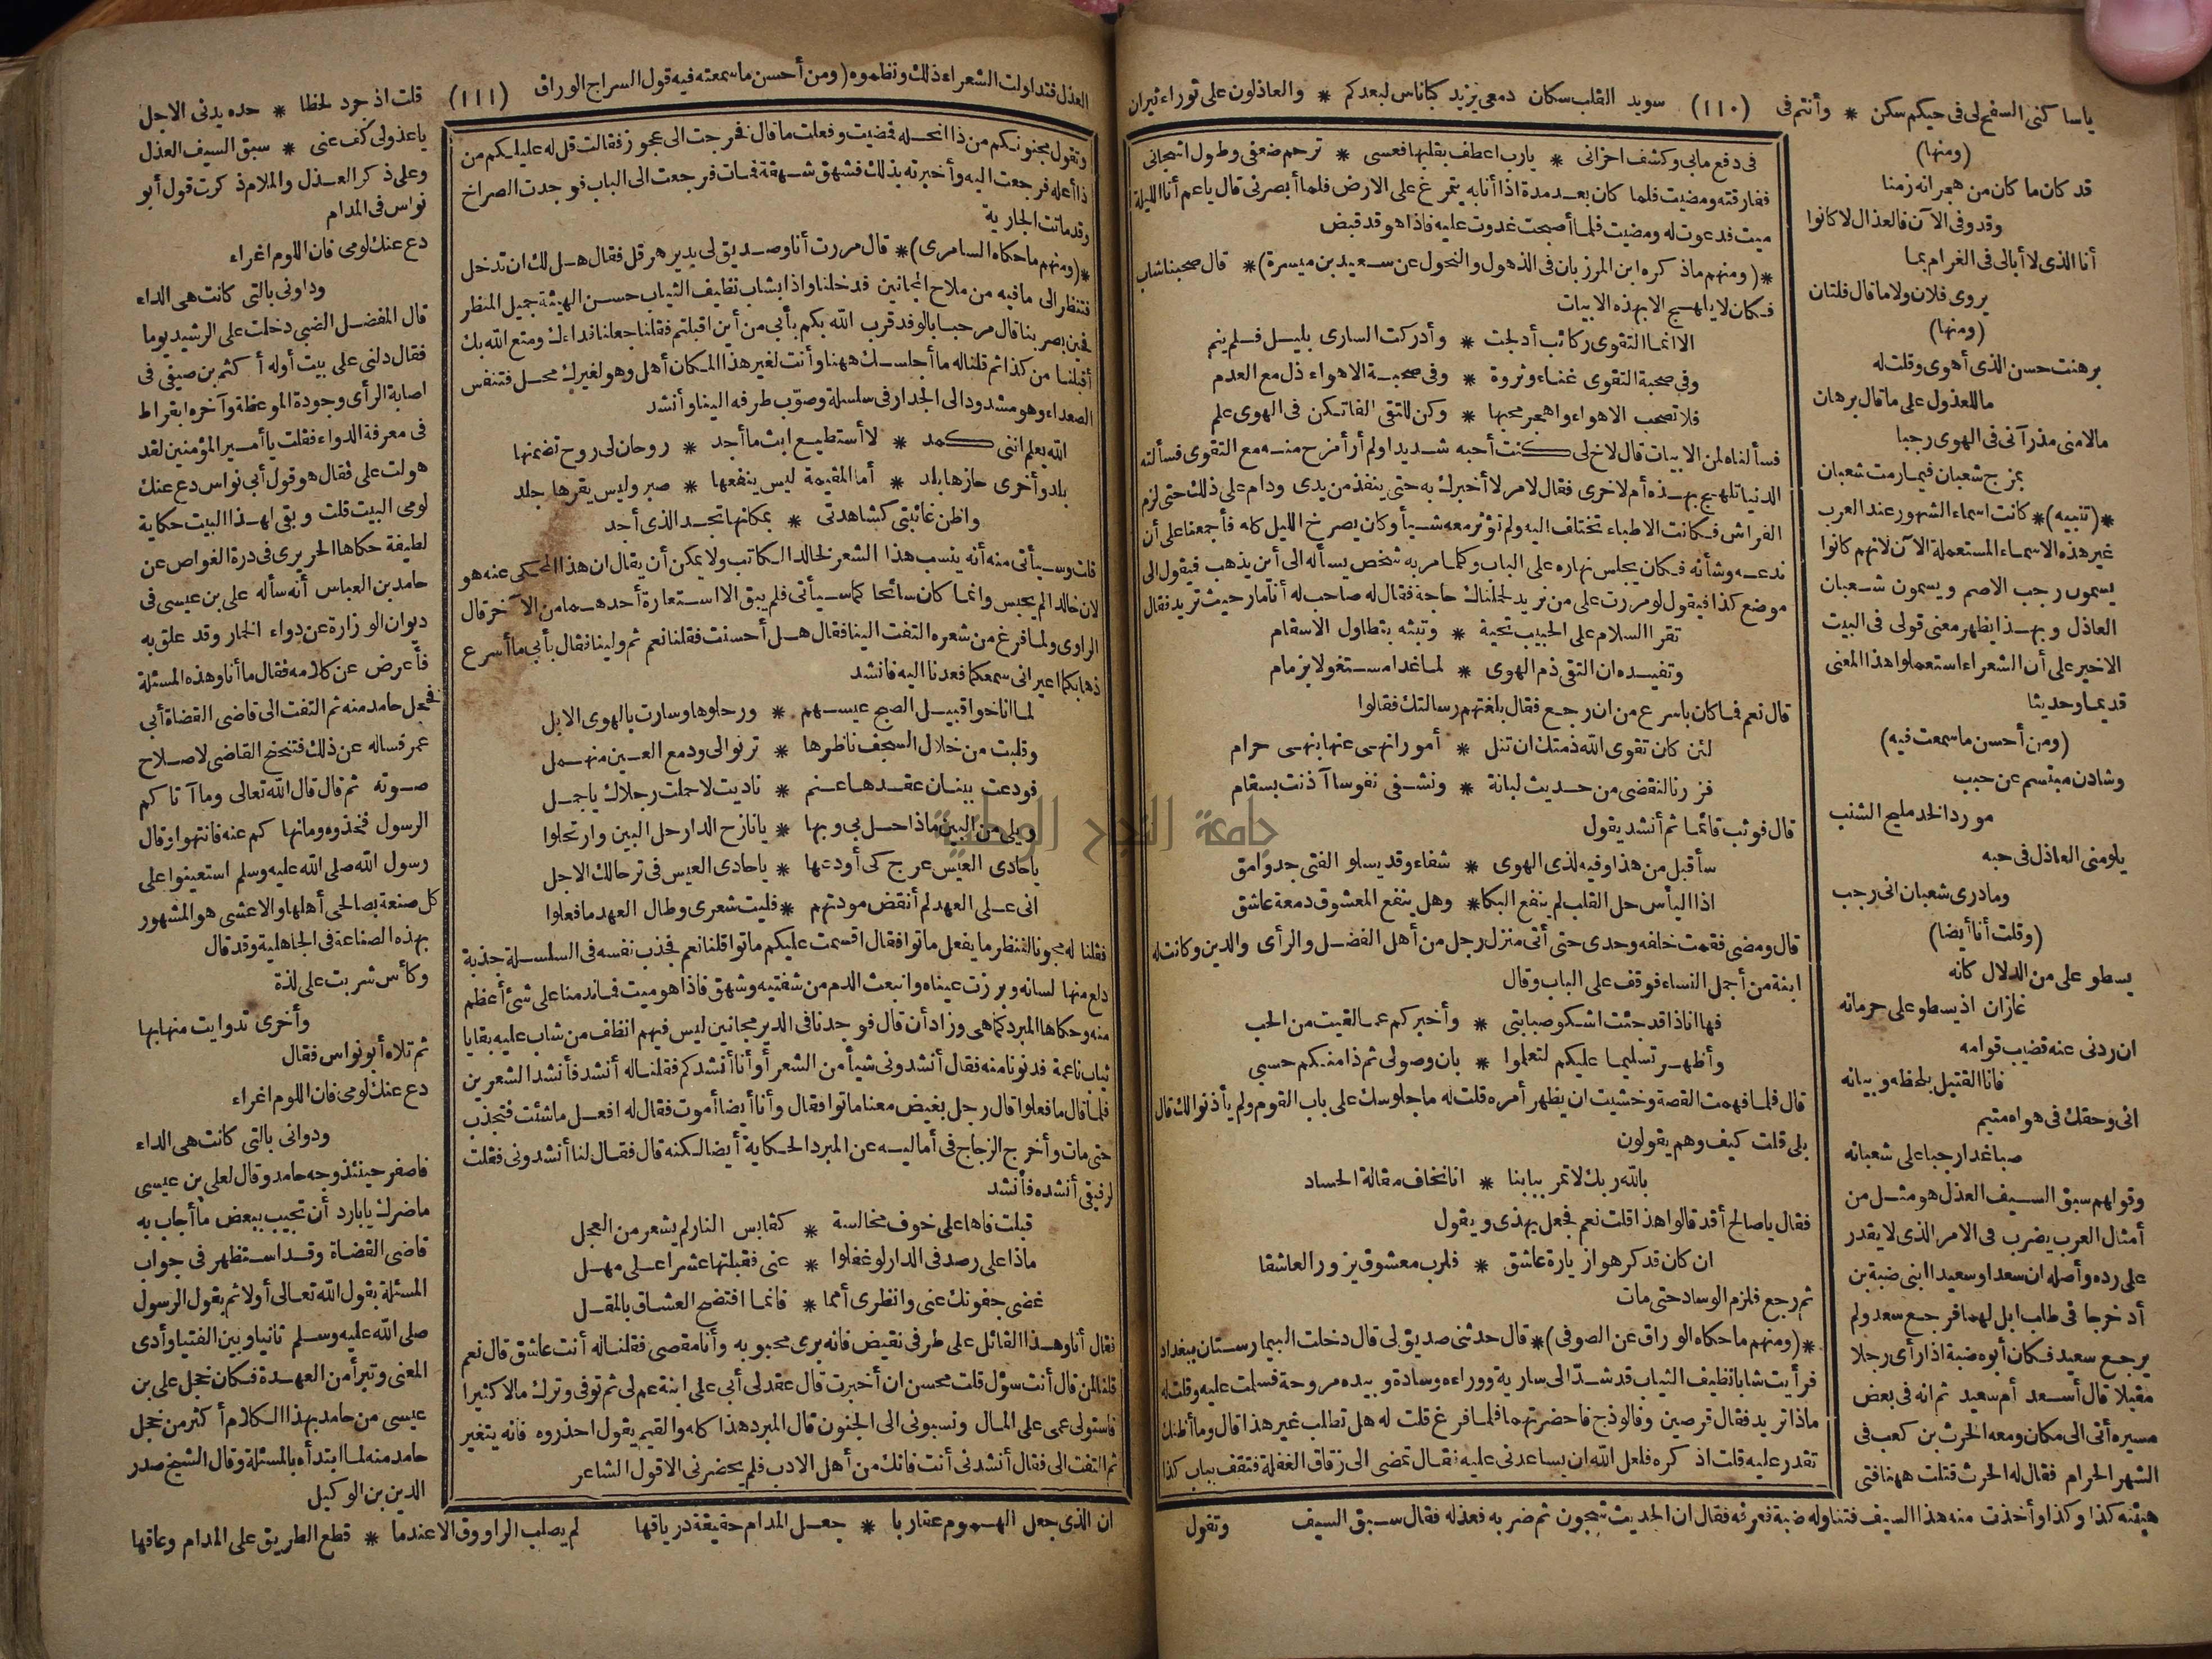 ياسا كنى السفح لى فى حيكم سكن * وأنتم فى (١١٠) سويد القلب سكان دمعى يزيد كباناس لبعدكم * والعاذلون على ثوراء ثيران
(ومنها)
قد كان ما كان من هجرانه زمنا
وقد وفى الآن فالعذال لا كانوا
أنا الذى لا أبالى فى الغرام بما
يروى فلان ولا ما قال فلتان
(ومنها)
برهنت حسن الذى أهوى وقلت له
ما للعذول على ما قال برهان
مالامنى مذ رآنى فى الهوى رجبا
بمزج شعبان فيما رمت شعبان
*(تنبيه)* كانت اسماء الشهور عند العرب
غير هذه الاسماء المستعملة الآن لانهم كانوا
يسمون رجب الاصم ويسمون شعبان
العاذل وبهذا يظهر معنى قولى فى البيت
الاخير على أن الشعراء استعملوا هذا المعنى
قديما وحديثا
(ومن أحسن ما سمعت فيه)
وشادن مبتسم عن حبب
مورد الخد مليح الشنب
يلومنى العاذل فى حبه
وما درى شعبان انى رجب
(وقلت أنا أيضا)
يسطو على من الدلال كانه
غازان اذ يسطو على حرمانه
ان ردنى عنه قضيب قوامه
فانا القتيل بلحظه وبيانه
انى وحقك فى هواه متيم
صب اغدار جبا على شعبانه
وقولهم سبق السيف العذل هو مثل من
أمثال العرب يضرب فى الامر الذى لا يقدر
على رده وأصله ان سعدا وسعيدا ابنى ضبة بن
أد خرجا فى طلب ابل لهما فرجع سعد ولم
يرجع سعيد فكان أبوه ضبة اذا رأى رجلا
مقبلا قال أسعد أم سعيد ثم انه فى بعض
مسيره أتى الى مكان ومعه الحرث بن كعب فى
الشهر الحرام فقال له الحرث قتلت ههنا فتى
هيئته كذا وكذا وأخذت منه هذا السيف فتناوله ضبة فعرفه فقال ان الحديث شجون ثم ضربه فعذله فقال سبق السيف
فى دفع مابى وكشف احزانى * يارب اعطف بقلبها فعسى * ترحم ضعفى وطول اشجانى
ففارقته ومضيت فلما كان بعد مدة اذا أنا به يتمرغ على الارض فلما أبصرنى قال ياعم أنا الليلة
ميت فدعوت له ومضيت فلما أصبحت غدوت عليه فاذا هو قد قبض
*(ومنهم ماذكره ابن المرزبان فى الذهول والنحول عن سعيد بن ميسرة)* قال صحبنا شاب
فكان لا يلهج الا بهذه الابيات
الا انما التقوى ركائب أدلجت * وأدركت السارى بليل فلم ينم
وفى صحبة التقوى غناء وثروة * وفى صحبة الاهواء ذل مع العدم
فلا تصحب الاهواء واهجر محبها * وكن للتقى الفا تكن فى الهوى علم
فسألناه لمن الابيات قال لاخ لى كنت أحبه شديدا ولم أر أمزح منه مع التقوى فسألته
الدنيا تلهج بهذه أم لاخرى فقال لامر لا أخبرك به حتى ينفذ من يدى ودام على ذلك حتى لزم
الفراش فكانت الاطباء تختلف اليه ولم تؤثر معه شيأ وكان يصرخ الليل كله فأجمعنا على أن
ندعه وشأنه فكان يجلس نهاره على الباب وكلما مر به شخص يسأله الى أين يذهب فيقول الى
موضع كذا فيقول لو مررت على من نريد لحملناك حاجة فقال له صاحب له أنا مار حيث تريد فقال
تقرا السلام على الحبيب تحية * وتبثه بتطاول الاسقام
وتفيده ان التقى ذم الهوى * لما غدا مستغولا بزمام
قال نعم فما كان باسرع من ان رجع فقال بلغتهم رسالتك فقالوا
لئن كان تقوى الله ذمتك ان تنل * أمورا نهى عنها بنهى حرام
فزرنا لنقضى من حديث لبانة * ونشفى نفوسا آذنت بسقام
قال فوثب قائما ثم أنشد يقول
سأقبل من هذا وفيه لذى الهوى * شفاء وقد يسلو الفتى جد وامق
اذا اليأس حل القلب لم ينفع البكا * وهل ينفع المعشوق دمعة عاشق
قال ومضى فقمت خلفه وحدى حتى أتى منزل رجل من أهل الفضل والرأى والدين وكانت له
ابنة من أجمل النساء فوقف على الباب وقال
فها انا ذا قد جئت اشكو صبابتى * وأخبركم عما لقيت من الحب
وأظهر تسليما عليكم لتعلموا * بان وصولى ثم ذا منكم حسبى
قال فلما فهمت القصة وخشيت ان يظهر أمره قلت له ما جلوسك على باب القوم ولم يأذنوا لك قال
بلى قلت كيف وهم يقولون
بالله ربك لا تمر ببابنا * انا نخاف مقالة الحساد
فقال ياصالح أقد قالوا هذا قلت نعم فجعل يهذى ويقول
ان كان قد كرهوا زيارة عاشق * فلرب معشوق يزور العاشقا
ثم رجع فلزم الوساد حتى مات
*(ومنهم ما حكاه الوراق عن الصوفى)* قال حدثنى صديق لى قال دخلت البيمارستان ببغداد
فرأيت شابا نظيف الثياب قد شد الى سارية ووراءه وسادة وبيده مروحة فسلمت عليه وقلت له
ماذا تريد فقال قرصين وفالوذج فاحضرتهما فلما فرغ قلت له هل تطلب غير هذا قال وما أظنك
تقدر عليه قلت اذكره فلعل الله ان يساعدنى عليه فقال تمضى الى زقاق الغفلة فتقف بباب كذا
وتقول
العذل فتداولت الشعراء ذلك ونظموه (ومن أحسن ما سمعته فيه قول السراج الوراق (١١١) قلت اذ جرد لحظا * حده يدنى الاجل
وتقول مجنونكم من ذا انحله فمضيت وفعلت ما قال فخرجت الى عجوز فقالت قل له عليلكم من
ذا أعله فرجعت اليه وأخبرته بذلك فشهق شهقة فمات فرجعت الى الباب فوجدت الصراخ
وقد ماتت الجارية
*(ومنهم ما حكاه السامرى)* قال مررت أنا وصديق لى بدير هرقل فقال هل لك ان تدخل
فتنظر الى ما فيه من ملاح المجانين فدخلنا واذا بشاب نظيف الثياب حسن الهيئة جميل المنظر
فحين بصر بنا قال مرحبا بالوفد قرب الله بكم بأبى من أين اقبلتم فقلنا جعلنا فداءك ومتع الله بك
أقبلنا من كذا ثم قلنا له ما أجلسك ههنا وأنت لغير هذا المكان أهل وهو لغيرك محل فتنفس
الصعداء وهو مشدود الى الجدار فى سلسلة وصوب طرفه الينا وأنشد
الله يعلم اننى كمد * لا أستطيع ابث ما أجد * روحان لى روح تضمنها
بلد وأخرى حازها بلد * أما المقيمة ليس ينفعها * صبر وليس يقرها جلد
واظن غائبتى كشاهدتى * بمكانها تجد الذى أجد
قلت وسيأتى منه أنه ينسب هذا الشعر لخالد الكاتب ولا يمكن أن يقال ان هذا المحكى عنه هو
لان خالدا لم يحبس وانما كان سائحا كما سيأتى فلم يبق الا استعارة أحدهما من الآخر قال
الراوى ولما فرغ من شعره التفت الينا فقال هل أحسنت فقلنا نعم ثم ولينا فقال بأبى ما أسرع
ذهابكما اعيرانى سمعكما فعدنا اليه فانشد
لما اناخوا قبيل الصبح عيسهم * ورحلوها وسارت بالهوى الابل
وقلبت من خلال السجف ناظرها * ترنو الى ودمع العين منهمل
فودعت ببنان عقدها عنم * ناديت لاحملت رجلاك ياجمل
ويلى من البين ماذا حل بى وبها * يانازح الدار حل البين وارتحلوا
ياحادى العيس عرج كى أودعها * ياحادى العيس فى ترحالك الاجل
انى على العهد لم أنقض مودتهم * فليت شعرى وطال العهد ما فعلوا
فقلنا له مجونا لننظر ما يفعل ماتوا فقال اقسمت عليكم ماتوا قلنا نعم فجذب نفسه فى السلسلة جذبة
دلع منها لسانه وبرزت عيناه وانبعث الدم من شفتيه وشهق فاذا هو ميت فما ندمنا على شئ أعظم
منه وحكاها المبرد كما هى وزاد أن قال فوجدنا فى الدير مجانين ليس فيهم انظف من شاب عليه بقايا
ثياب ناعمة فدنونا منه فقال أنشدونى شيأ من الشعر أو أنا أنشدكم فقلنا له أنشد فأنشد الشعر بن
فلما قال ما فعلوا قال رجل بغيض معنا ماتوا فقال وأنا أيضا أموت فقال له افعل ما شئت فتجذب
حتى مات وأخرج الزجاج فى أماليه عن المبرد الحكاية أيضا لكنه قال فقال لنا أنشدونى فقلت
لرفيقى أنشده فأنشد
قبلت فاها على خوف مخالسة * كقابس النار لم يشعر من العجل
ماذا على رصد فى الدار لو غفلوا * عنى فقبلتها عشرا على مهل
غضى جفونك عنى وانظرى أمما * فانما افتضح العشاق بالمقل
فقال أنا وهذا القائل على طرفى نقيض فانه برى محبوبه وأنا مقصى فقلنا له أنت عاشق قال نعم
قلنا لمن قال أنت سؤل قلت محسن ان أخبرت قال عقد لى أبى على ابنة عم لى ثم توفى وترك مالا كثيرا
فاستولى عمى على المال ونسبونى الى الجنون قال المبرد هذا كله والقيم يقول احذروه فانه يتغير
ثم التفت الى فقال أنشدنى أنت فانك من أهل الادب فلم يحضرنى الا قول الشاعر
ياعذولى كف عنى * سبق السيف العذل
وعلى ذكر العذل والملام ذكرت قول أبو
نواس فى المدام
دع عنك لومى فان اللوم اغراء
وداونى بالتى كانت هى الداء
قال المفضل الضبى دخلت على الرشيد يوما
فقال دلنى على بيت أوله أكثم بن صيفى فى
اصابة الرأى وجودة الموعظة وآخره ابقراط
فى معرفة الدواء فقلت يا أمير المؤمنين لقد
هولت على فقال هو قول أبى نواس دع عنك
لومى البيت قلت وبقى لهذا البيت حكاية
لطيفة حكاها الحريرى فى درة الغواص عن
حامد بن العباس أنه سأله على بن عيسى فى
ديوان الوزارة عن دواء الخمار وقد علق به
فأعرض عن كلامه فقال ما أنا وهذه المسئلة
فخجل حامد منه ثم التفت الى قاضى القضاة أبى
عمر فساله عن ذلك فتنحنح القاضى لاصلاح
صوته ثم قال قال الله تعالى وما آتاكم
الرسول فخذوه وما نهاكم عنه فانتهوا وقال
رسول الله صلى الله عليه وسلم استعينوا على
كل صنعة بصالحى أهلها والاعشى هو المشهور
بهذه الصناعة فى الجاهلية وقد قال
وكأس شربت على لذة
وأخرى تداويت منها بها
ثم تلاه أبو نواس فقال
دع عنك لومى فان اللوم اغراء
ودوانى بالتى كانت هى الداء
فاصفر حينئذ وجه حامد وقال لعلى بن عيسى
ماضرك يابارد أن تجيب ببعض ما أجاب به
قاضى القضاة وقد استظهر فى جواب
المسئلة بقول الله تعالى أولا ثم بقول الرسول
صلى الله عليه وسلم ثانيا وبين الفتيا وأدى
المعنى وتبرأ من العهدة فكان خجل على بن
عيسى من حامد بهذا الكلام أكثر من خجل
حامد منه لما ابتدأه بالمسئلة وقال الشيخ صدر
الدين بن الوكيل
ان الذى جعل الهموم عقاربا * جعل المدام حقيقة درياقها لم يصلب الراووق الا عندما * قطع الطريق على المدام وعاقها
جامعة النجاح الوطنية